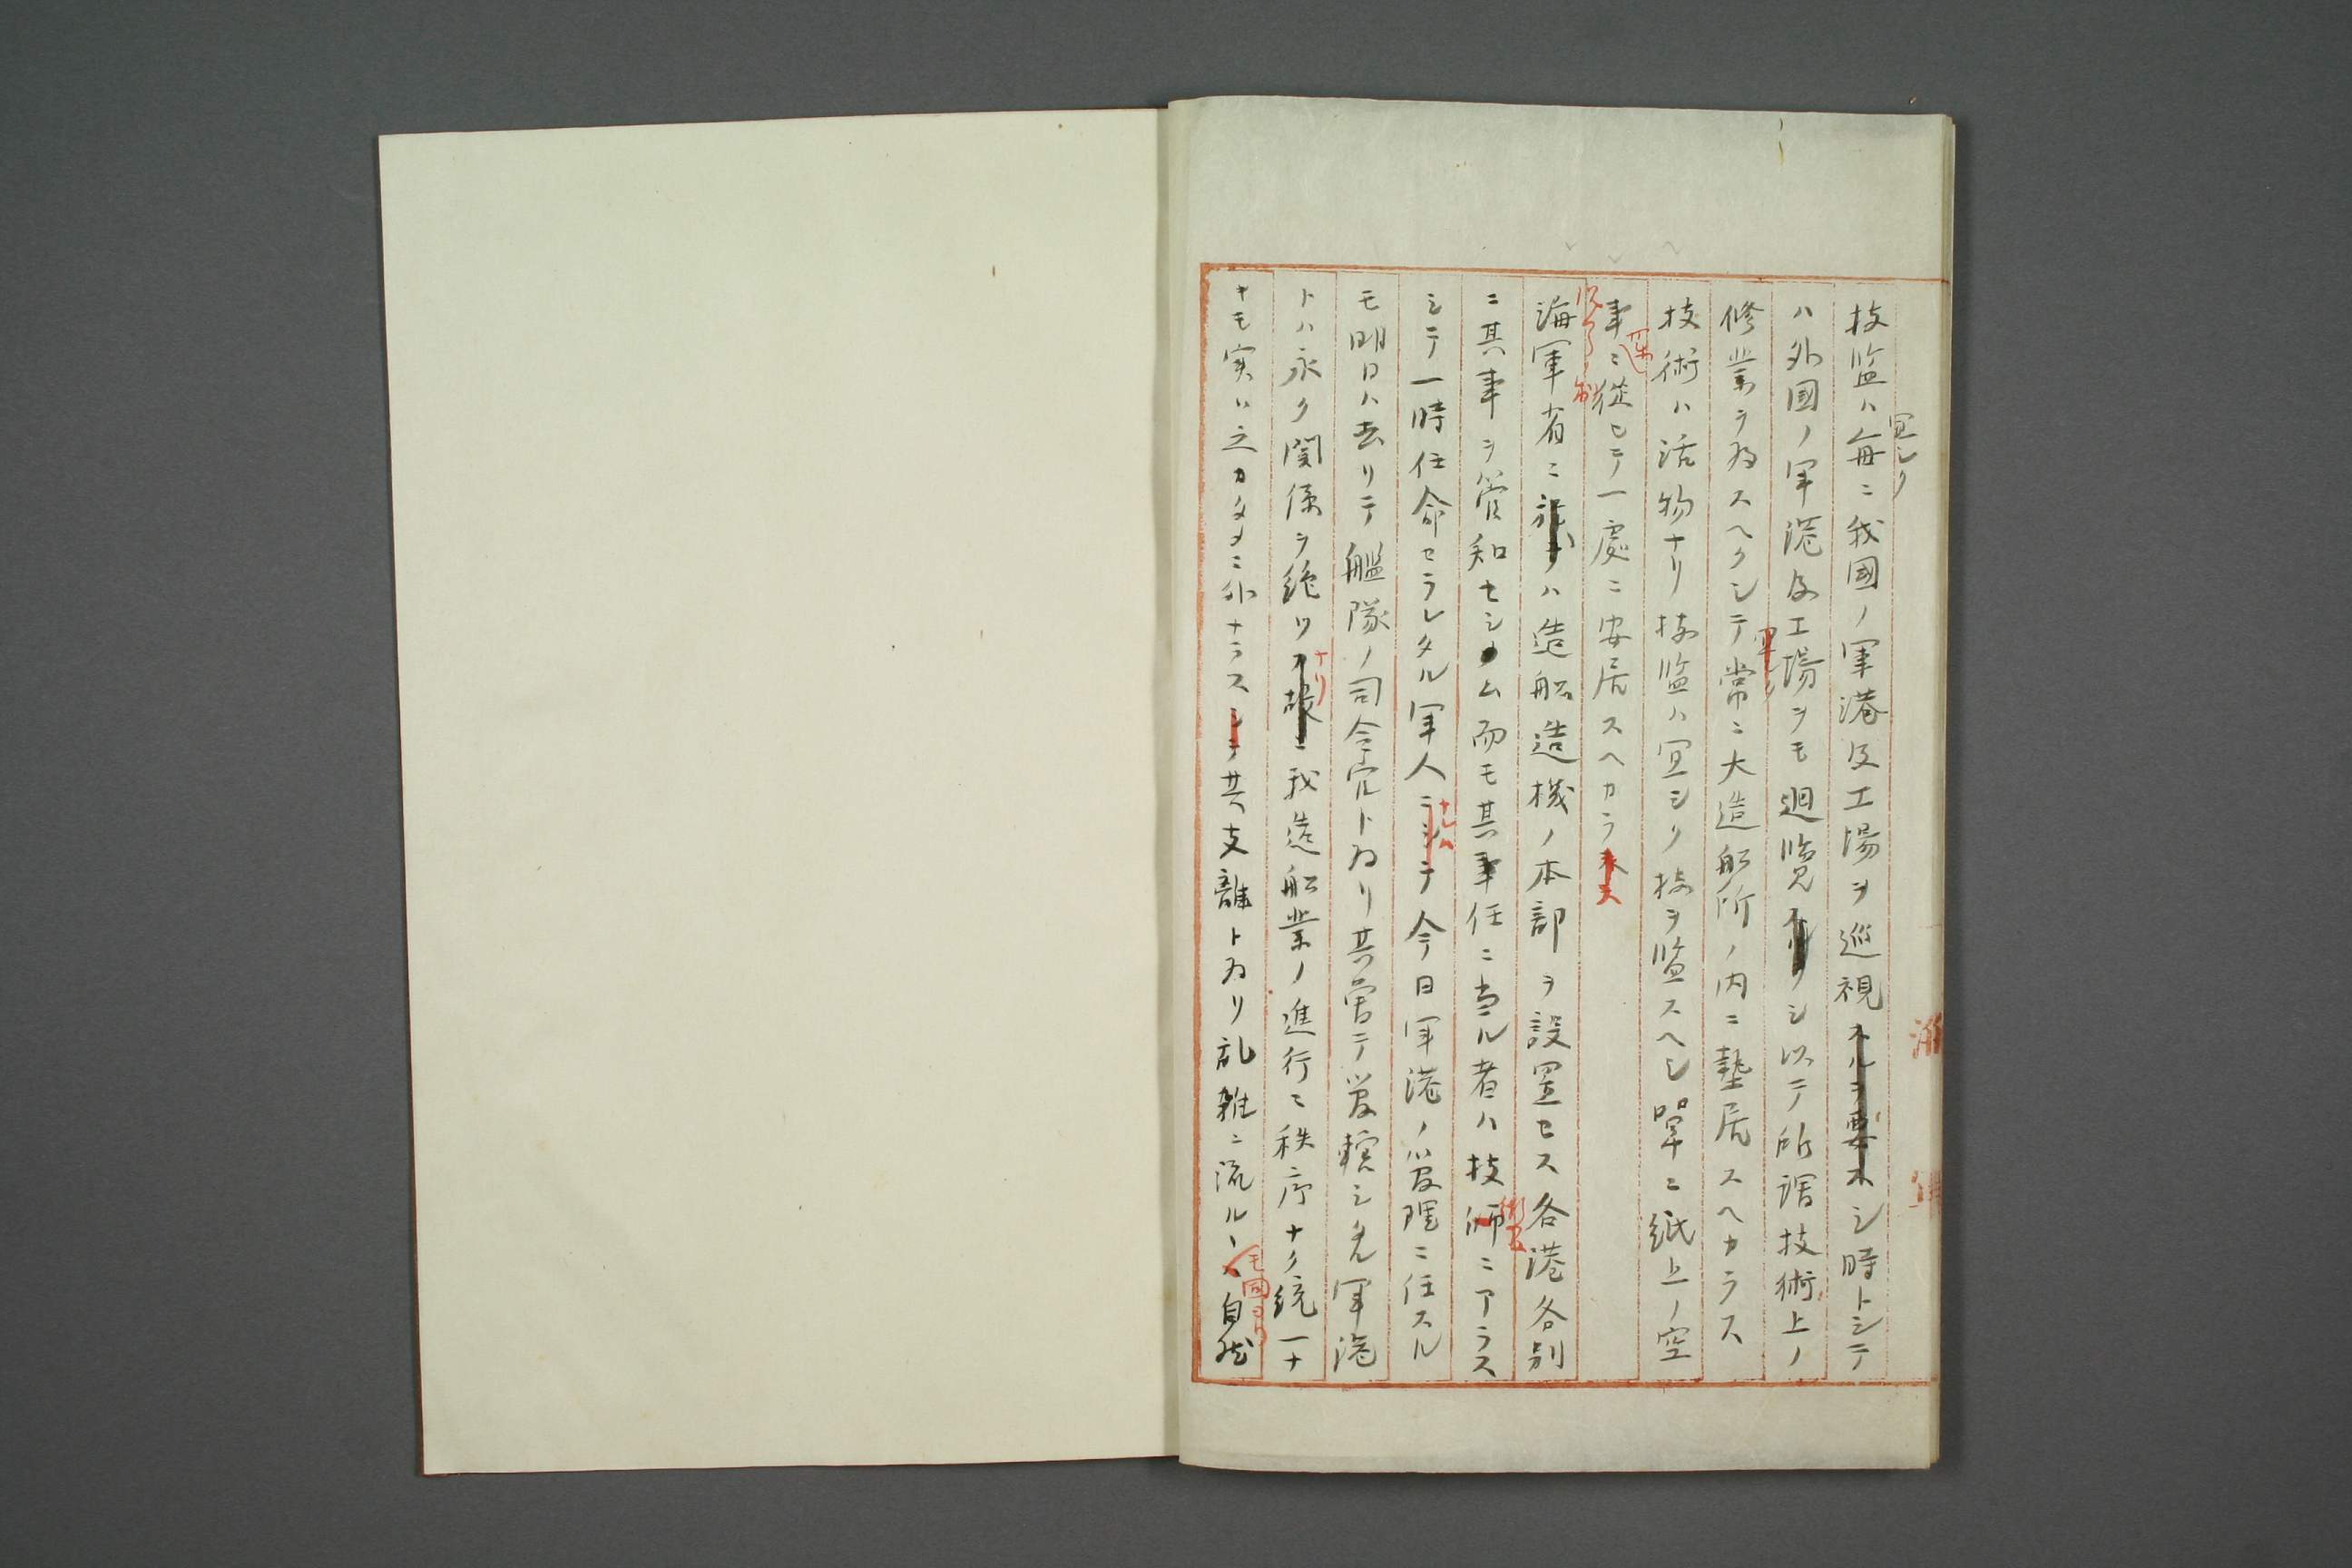 宜シク
技監ハ毎ニ我國ノ軍港及工場ヲ巡視スルヲ要スシ時トシテ
ハ外國ノ軍港及工場ヲモ廻覧シ以テ所謂技術上ノ
修業ヲ為スヘクシテ常ニ大造船所ノ内ニ蟄居スヘカラス
技術ハ活物ナリ技監ハ宜シク技ヲ監スヘシ單ニ紙上ノ空
事ニ從ヒテ一處ニ安居スヘカラ
海軍省ニハ造船造機ノ本部ヲ設置セス各港各別
ニ其事ヲ管知セシム而モ其事任ニ当ル者ハ技師ニアラス
シテ一時任命セラレタル軍人ラシテ今日軍港ノ管理ニ任スル
モ明日ハ去リテ艦隊ノ司令官ト為リ其嘗テ管轄シタル軍港
トハ永ク関係ヲ絶ツ故ニ我造船業ノ進行ニ秩序ナク統一ナ
キモ実ニ之カタメニ外ナラスシテ其支離ト為リ乱雑ニ流ルヽ自然